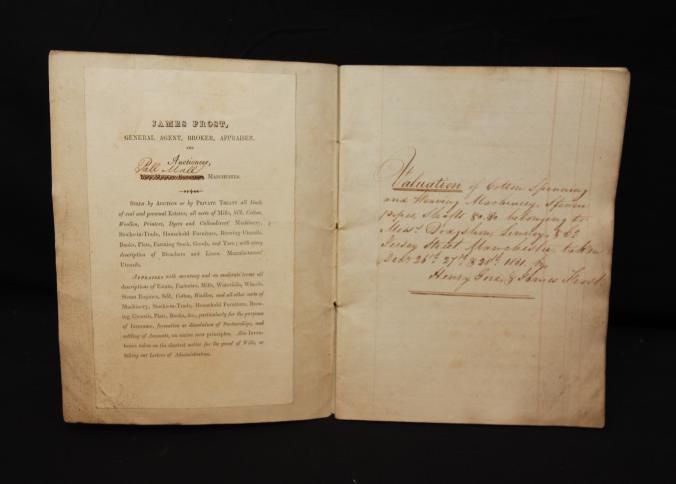 JAMES FROST,
GENERAL AGENT, BROKER, APPRAISER,
AND
Auctioneer,
Pall Mall
MANCHESTER.
SELLS by AUCTION or by PRIVATE TREATY all kinds
of real and personal Estates, all sorts of Mills, Silk, Cotton,
Woollen, Printers, Dyers and Callenderers' Machinery,
Stocks-in-Trade, Household Furniture, Brewing Utensils,
Books, Plate, Farming Stock, Goods, and Yarn; with every
description of Bleachers and Linen Manufacturers'
Utensils.
APPRAISES with accuracy and on moderate terms all
descriptions of Estate, Factories, Mills, Waterfalls, Wheels,
Steam Engines, Silk, Cotton, Woollen, and all other sorts of
Machinery, Stocks-in-Trade, Household Furniture, Brew-
ing Utensils, Plate, Books, &c., particularly for the purpose
of Insurance, formation or dissolution of Partnerships, and
settling of Accounts, on entire new principles. Also Inven-
tories taken on the shortest notice for the proof of Wills, or
taking out Letters of Administration.
Valuation of Cotton Spinning
and Weaving Machinery, Steam
pipes, Shafts &c. &c. belonging to
Mess.rs
Jersey Street Manchester taken
26th 27th & 28th by
Henry & James Frost.